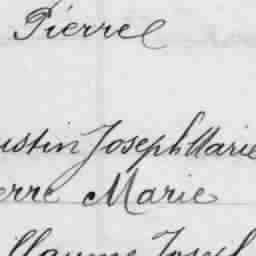 Pierrel
ustin Joseph Marie
erre Marie
llaume Josep